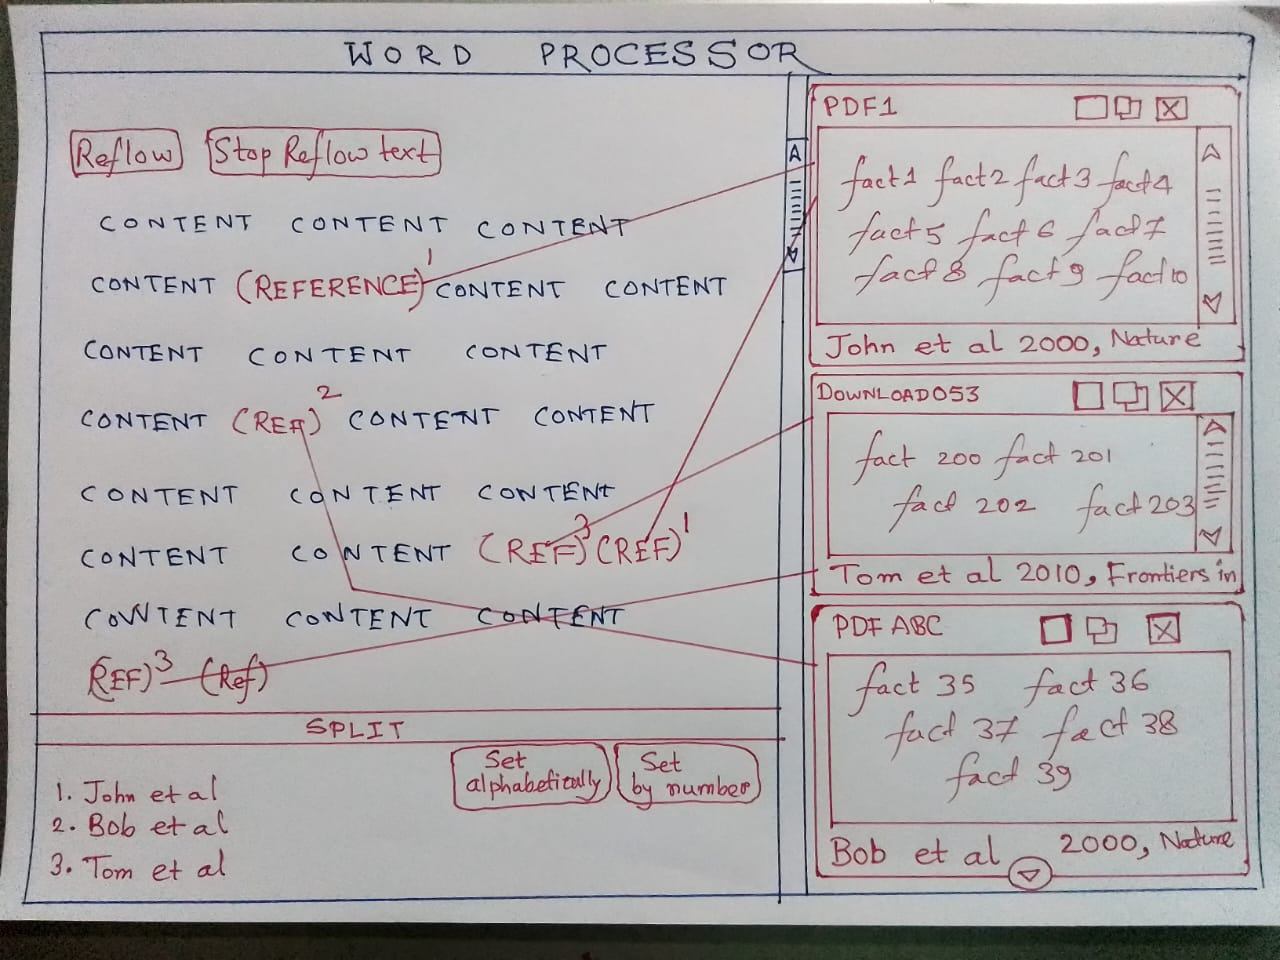 WORD PROCESSOR
Reflow Stop Reflow text
CONTENT CONTENT CONTENT
CONTENT (REFERENCE)1 CONTENT CONTENT
CONTENT CONTENT CONTENT
CONTENT (REF)2 CONTENT CONTENT
CONTENT CONTENT CONTENT
CONTENT CONTENT (REF)3 (REF)1
CONTENT CONTENT CONTENT
(REF)3 (Ref)
SPLIT
Set alphabetically
Set by number
1. John et al
2. Bob et al
3. Tom et al
PDF1
fact1 fact2 fact3 fact4
fact5 fact6 fact7
fact8 fact9 fact10
John et al 2000, Nature
DOWNLOAD053
fact 200 fact 201
fact 202 fact 203
Tom et al 2010, Frontiers in
PDF ABC
fact 35 fact 36
fact 37 fact 38
fact 39
Bob et al 2000, Nature